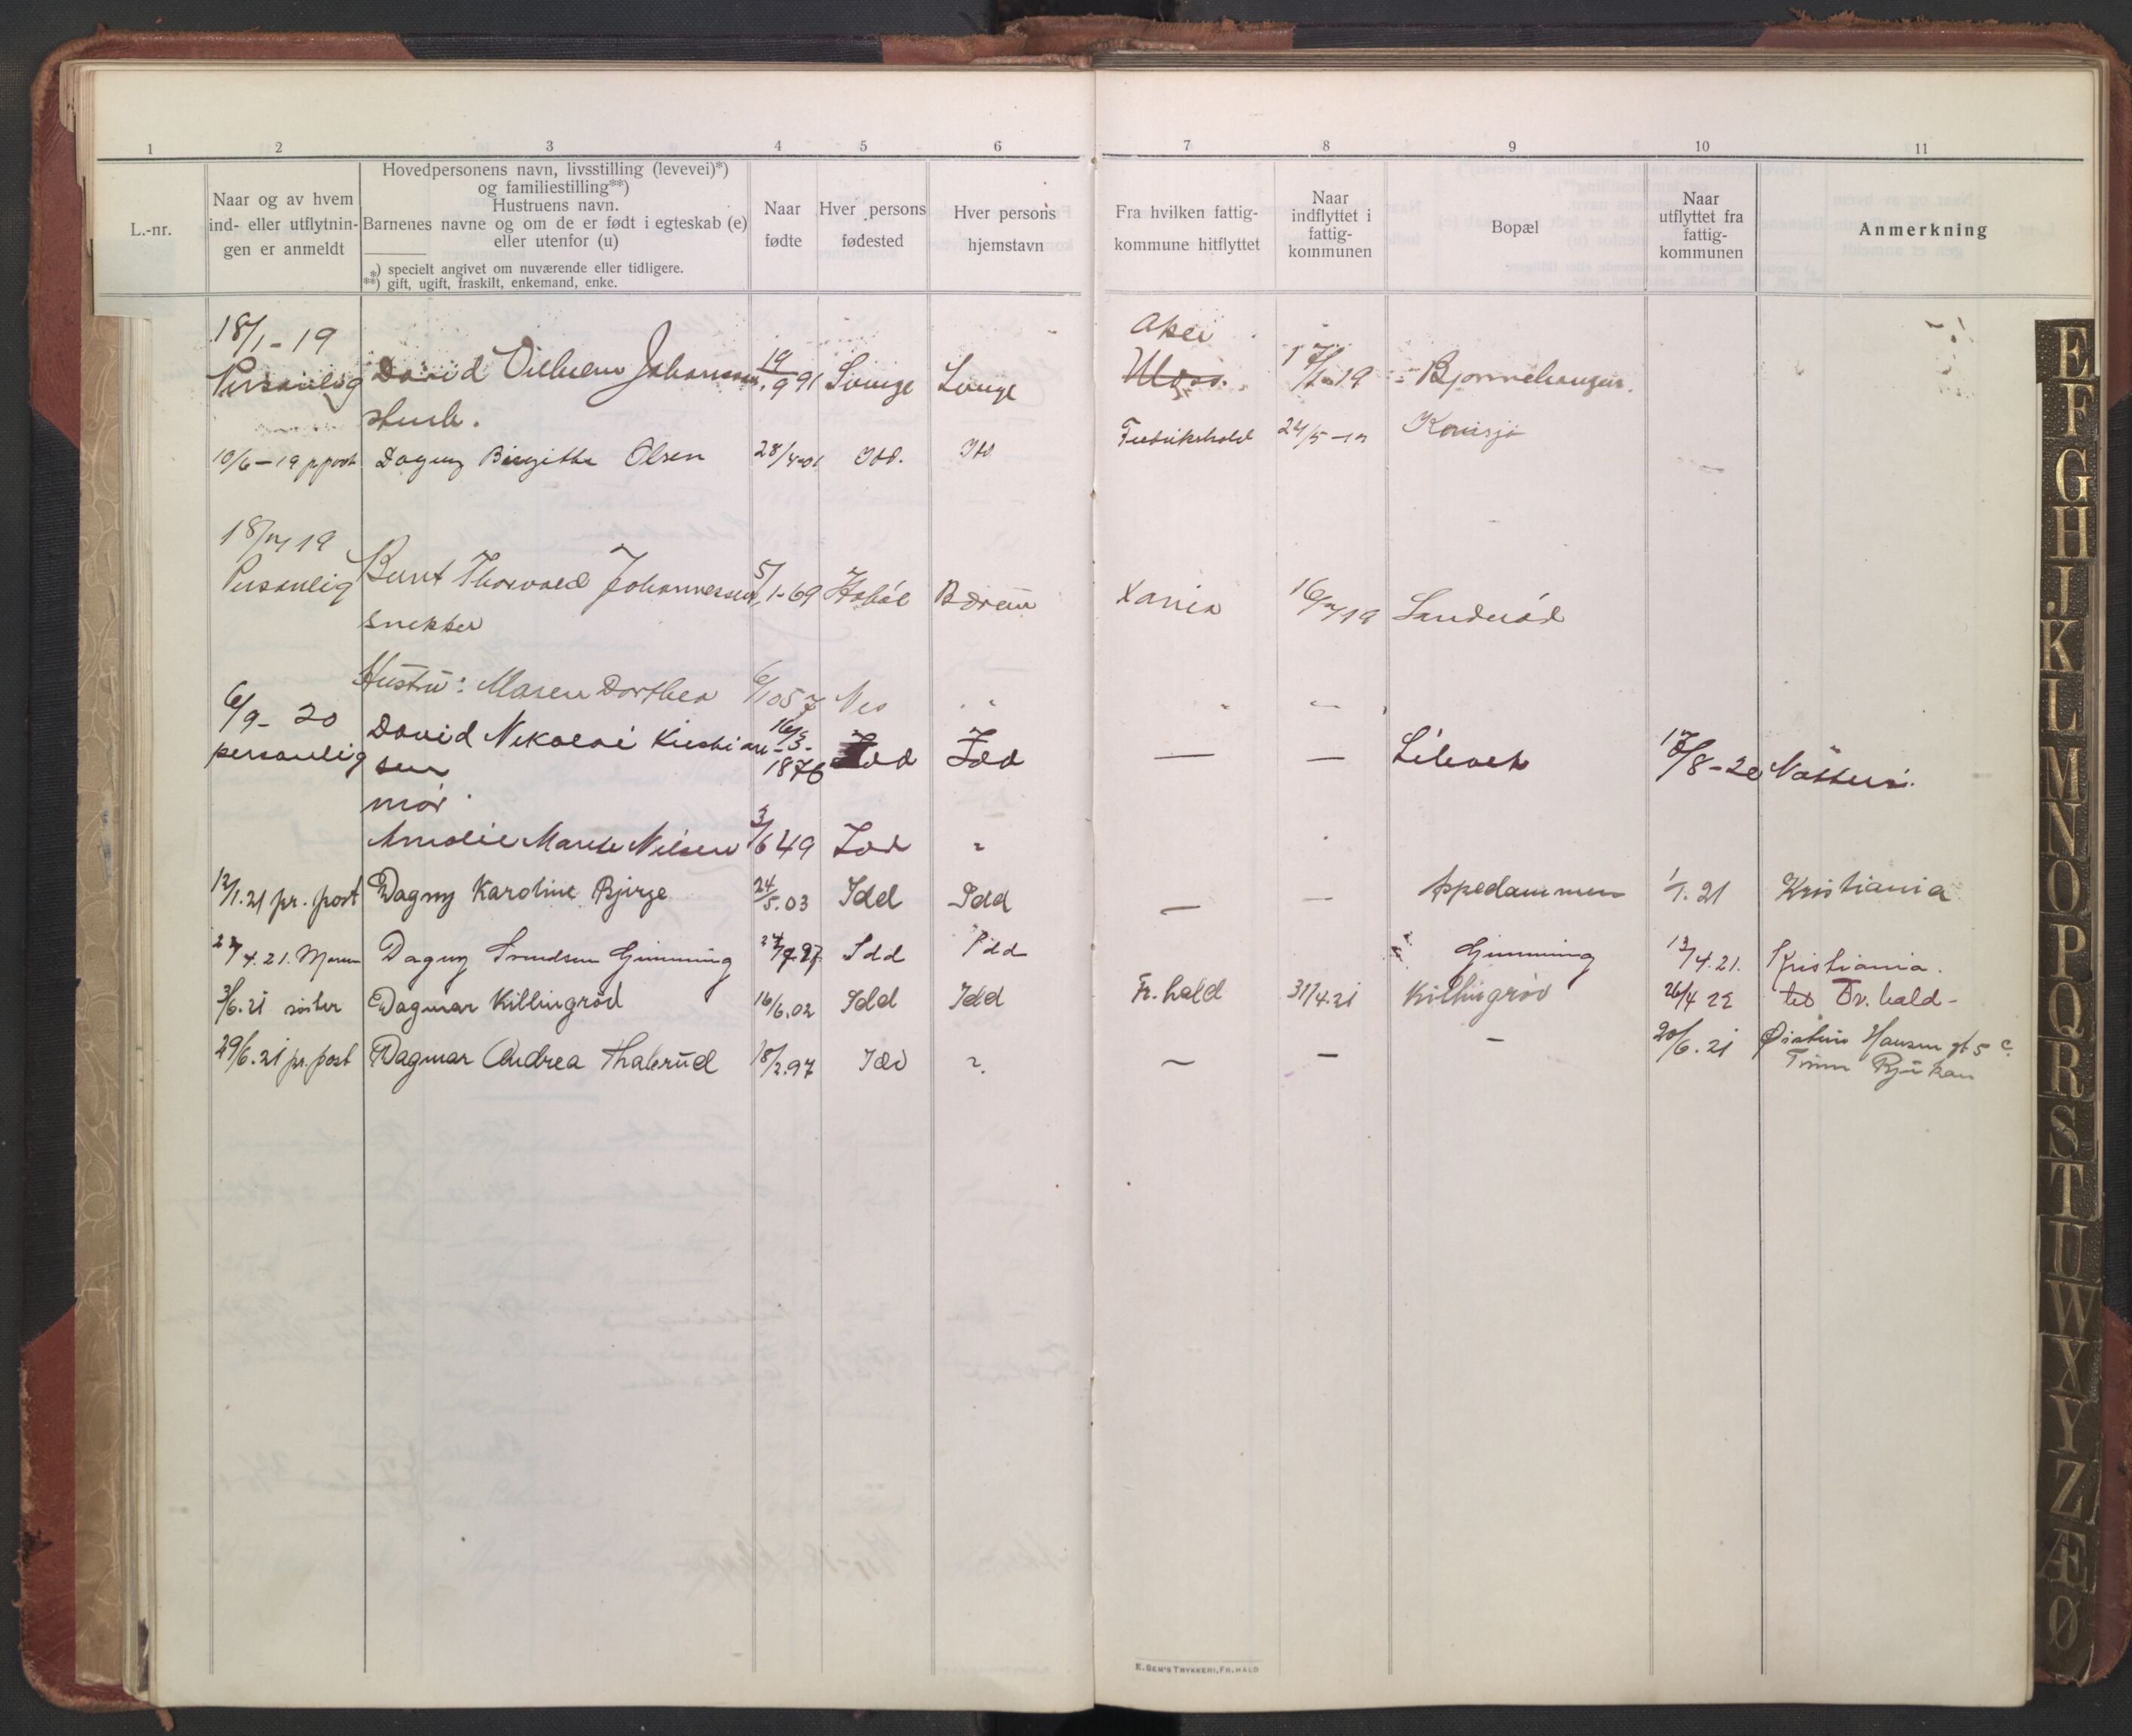 1 2 3 4 5 6 7 8 9 10 11
L.-nr.
Naar og av hvem
ind- eller utflytnin-
gen er anmeldt
Hovedpersonens navn, livsstilling (levevei)*)
og familiestilling**)
Hustruens navn.
Barnenes navne og om de er født i egteskab (e)
eller utenfor (u)
*) specielt angivet om nuværende eller tidligere.
**) gift, ugift, fraskilt, enkemand, enke.
Naar
fødte
Hver persons
fødested
Hver persons
hjemstavn
Fra hvilken fattig-
kommune hitflyttet
Naar
indflyttet i
fattig-
kommunen
Bopæl
Naar
utflyttet fra
fattig-
kommunen
Anmerkning
18/1-19 Aker
Personlig David Vilhelm Johansen 19/9 91 Moss. 19
10/6-19 p post Dagny Birgitte Olsen 28/4-01 Idd. Idd Fredrikshald 24/5-19 Kornsjø
19
Personlig Bernt Thorvald Johannessen 5/1-69 Hobøl Bærum Xania 19 Sanderød
snekker
Hustru: Maren Dorthea Nes
6/9-20 David Nikolai Kristian- 16/3-
personlig sen 1876 Idd Idd — — 8-20
mor
Amalie Marie Nilsen 3/6 49 Idd "
12/1.21 pr. post Dagny Karoline Bjørge 24/5.03 Idd Idd — — Aspedammen 1/1.21 Kristiania
4.21. Dagny Svendsen Gimming Idd Idd Gimming 12/4.21. Kristiania.
3/6.21 søster Dagmar Killingrød 16/6.02 Idd Idd Fr.hald 31/4.21 Killingrød 26/4 22 til Fr.hald-
29/6.21 pr. post Dagmar Andrea Thalerud 18/2.97 Idd ". — — - 20/6.21 Øistein Hansen gt 5 c.
Tinn Rjukan
E. SEM'S TRYKKERI, FR.HALD
E
F
G
H
J
K
L
M
N
O
P
Q
R
S
T
U
W
X
Y
Z
Æ
Ø